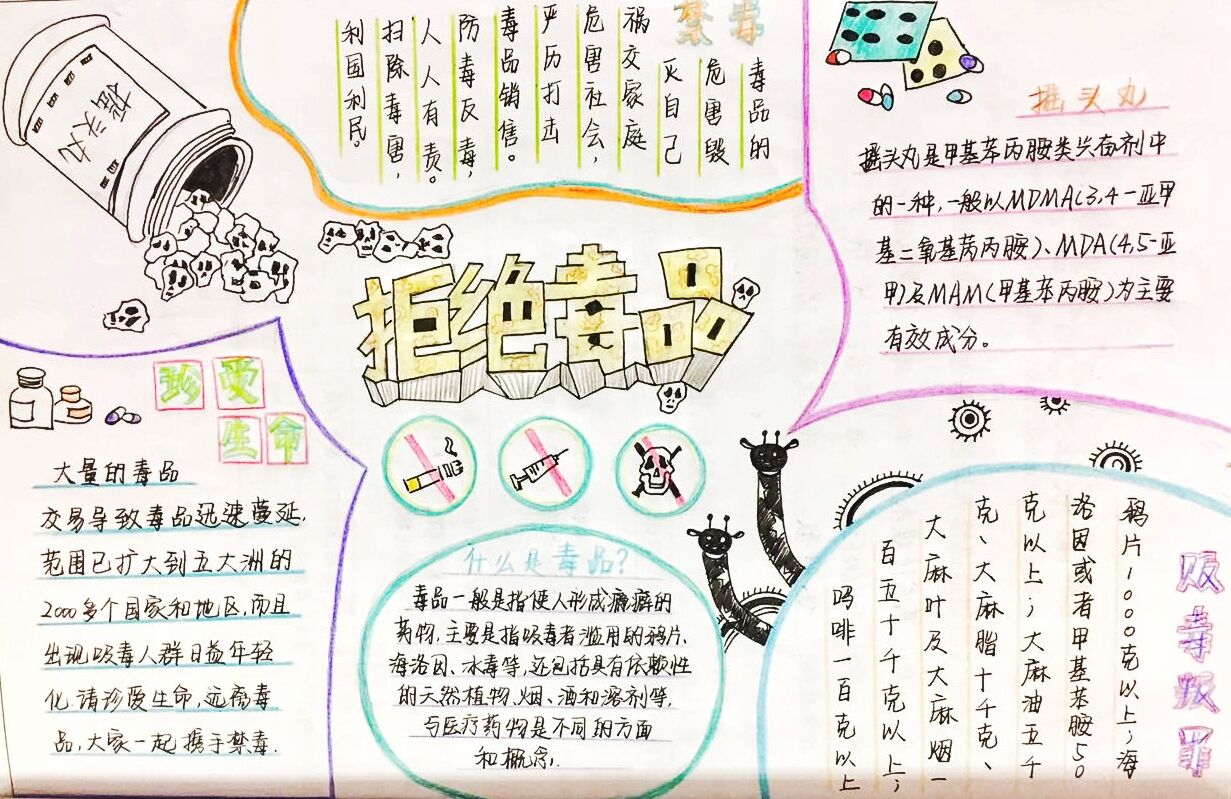 摇头丸
禁毒
毒品的
危害毁
灭自己
祸交家庭
危害社会，
严历打击
毒品销售。
防毒反毒，
人人有责。
扫除毒害，
利国利民。
摇头丸
摇头丸是甲基苯丙胺类兴奋剂中
的一种，一般以MDMA(3,4-亚甲
基二氧基芮丙胺)、MDA(4,5-亚
甲)及MAM(甲基苯丙胺)为主要
有效成分。
拒绝毒品
珍爱
生命
大量的毒品
交易导致毒品迅速蔓延，
范围已扩大到五大洲的
2000多个国家和地区，而且
出现吸毒人群日益年轻
化.请珍爱生命，远离毒
品，大家一起携手禁毒.
什么是毒品?
毒品一般是指使人形成瘾癖的
药物，主要是指吸毒者滥用的鸦片、
海洛因、冰毒等，还包括具有依赖性
的天然植物、烟、酒和溶剂等，
与医疗药物是不同的方面
和概念.
贩毒叛罪
鸦片1000克以上；海
洛因或者甲基苯胺50
克以上；大麻油五千
克、大麻脂十千克、
大麻叶及大麻烟一
百五十千克以上；
吗啡一百克以上